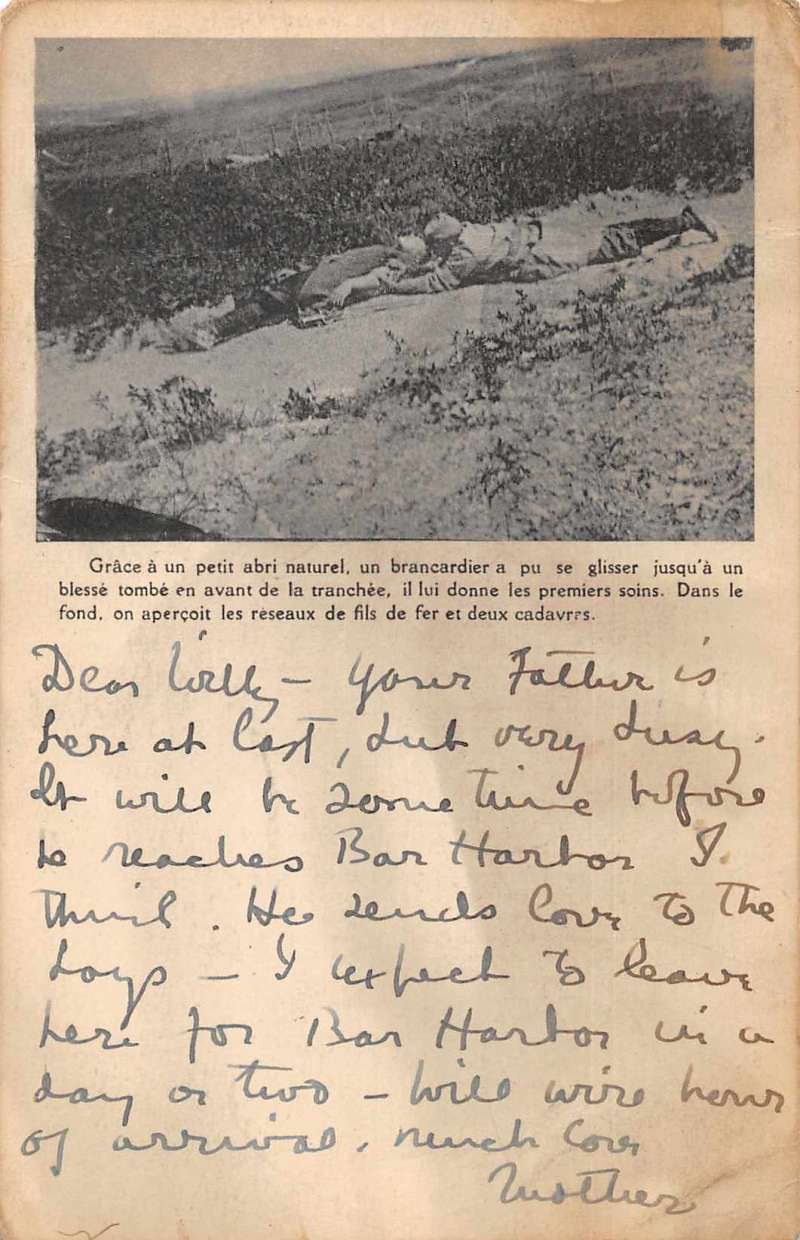 Grâce à un petit abri naturel, un brancardier a pu se glisser jusqu'à un
blessé tombé en avant de la tranchée, il lui donne les premiers soins. Dans le
fond, on aperçoit les réseaux de fils de fer et deux cadavres.
Dear Willy – your Father is
here at last, but very busy.
It will be some time before
he reaches Bar Harbor I
think. He sends love to the
boys – I expect to leave
here for Bar Harbor in a
day or two – Will wire hour
of arrival. Much love
Mother